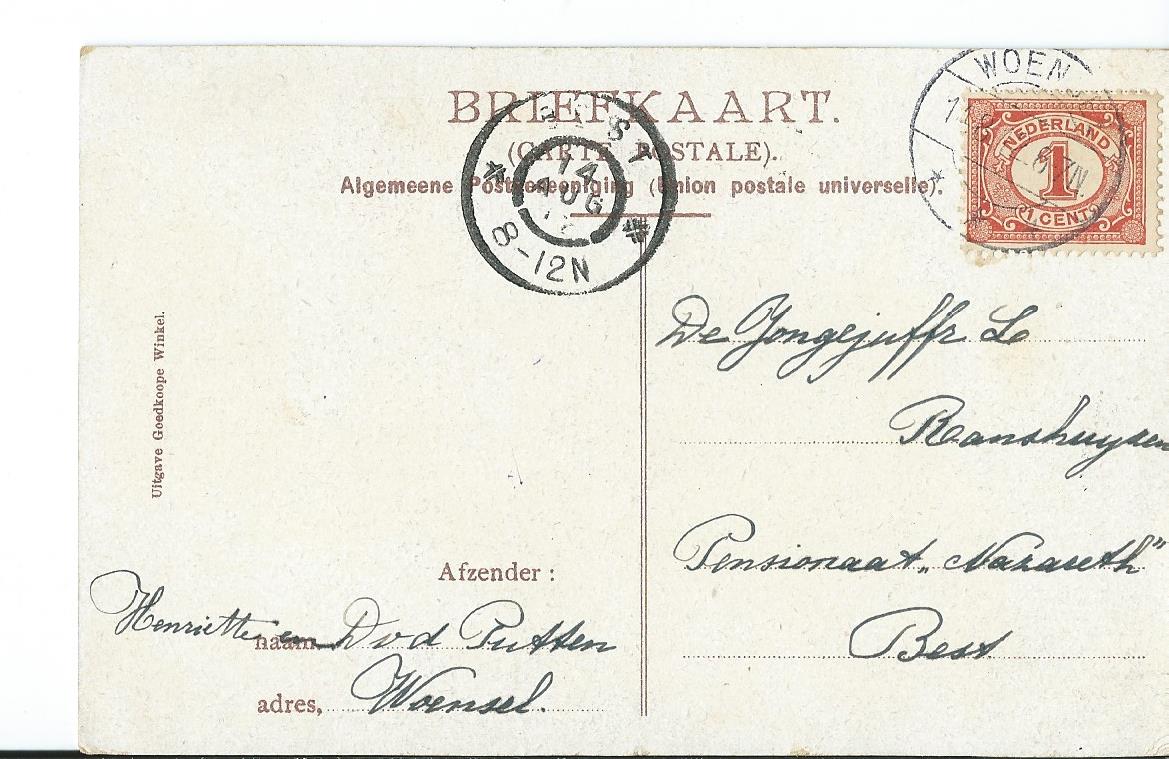 BRIEFKAART.
(CARTE POSTALE).
Algemeene Postvereeniging (Union postale universelle).
BEST
14
AUG
8-12N
WOEN
NEDERLAND
1
1 CENT
De Jongejuffr. Le
Ranshuysen
Pensionaat „Nazareth"
Best
Uitgave Goedkoope Winkel.
Afzender :
Henriette en
naam D v d Putten
adres, Woensel.